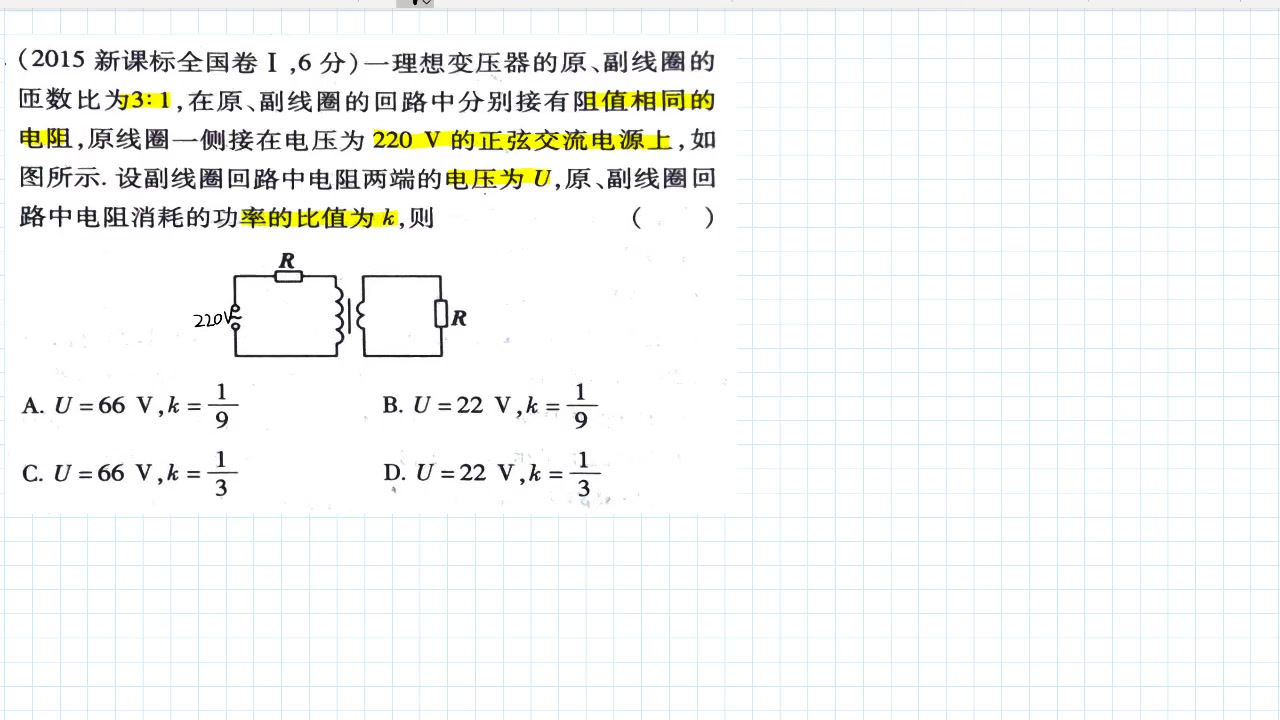 (2015 新课标全国卷 Ⅰ ,6 分)一理想变压器的原、副线圈的
匝数比为3∶1,在原、副线圈的回路中分别接有阻值相同的
电阻,原线圈一侧接在电压为 220 V 的正弦交流电源上,如
图所示. 设副线圈回路中电阻两端的电压为 U,原、副线圈回
路中电阻消耗的功率的比值为 k,则 (    )
R
220V
~
R
A. U = 66 V, k = 1/9
B. U = 22 V, k = 1/9
C. U = 66 V, k = 1/3
D. U = 22 V, k = 1/3